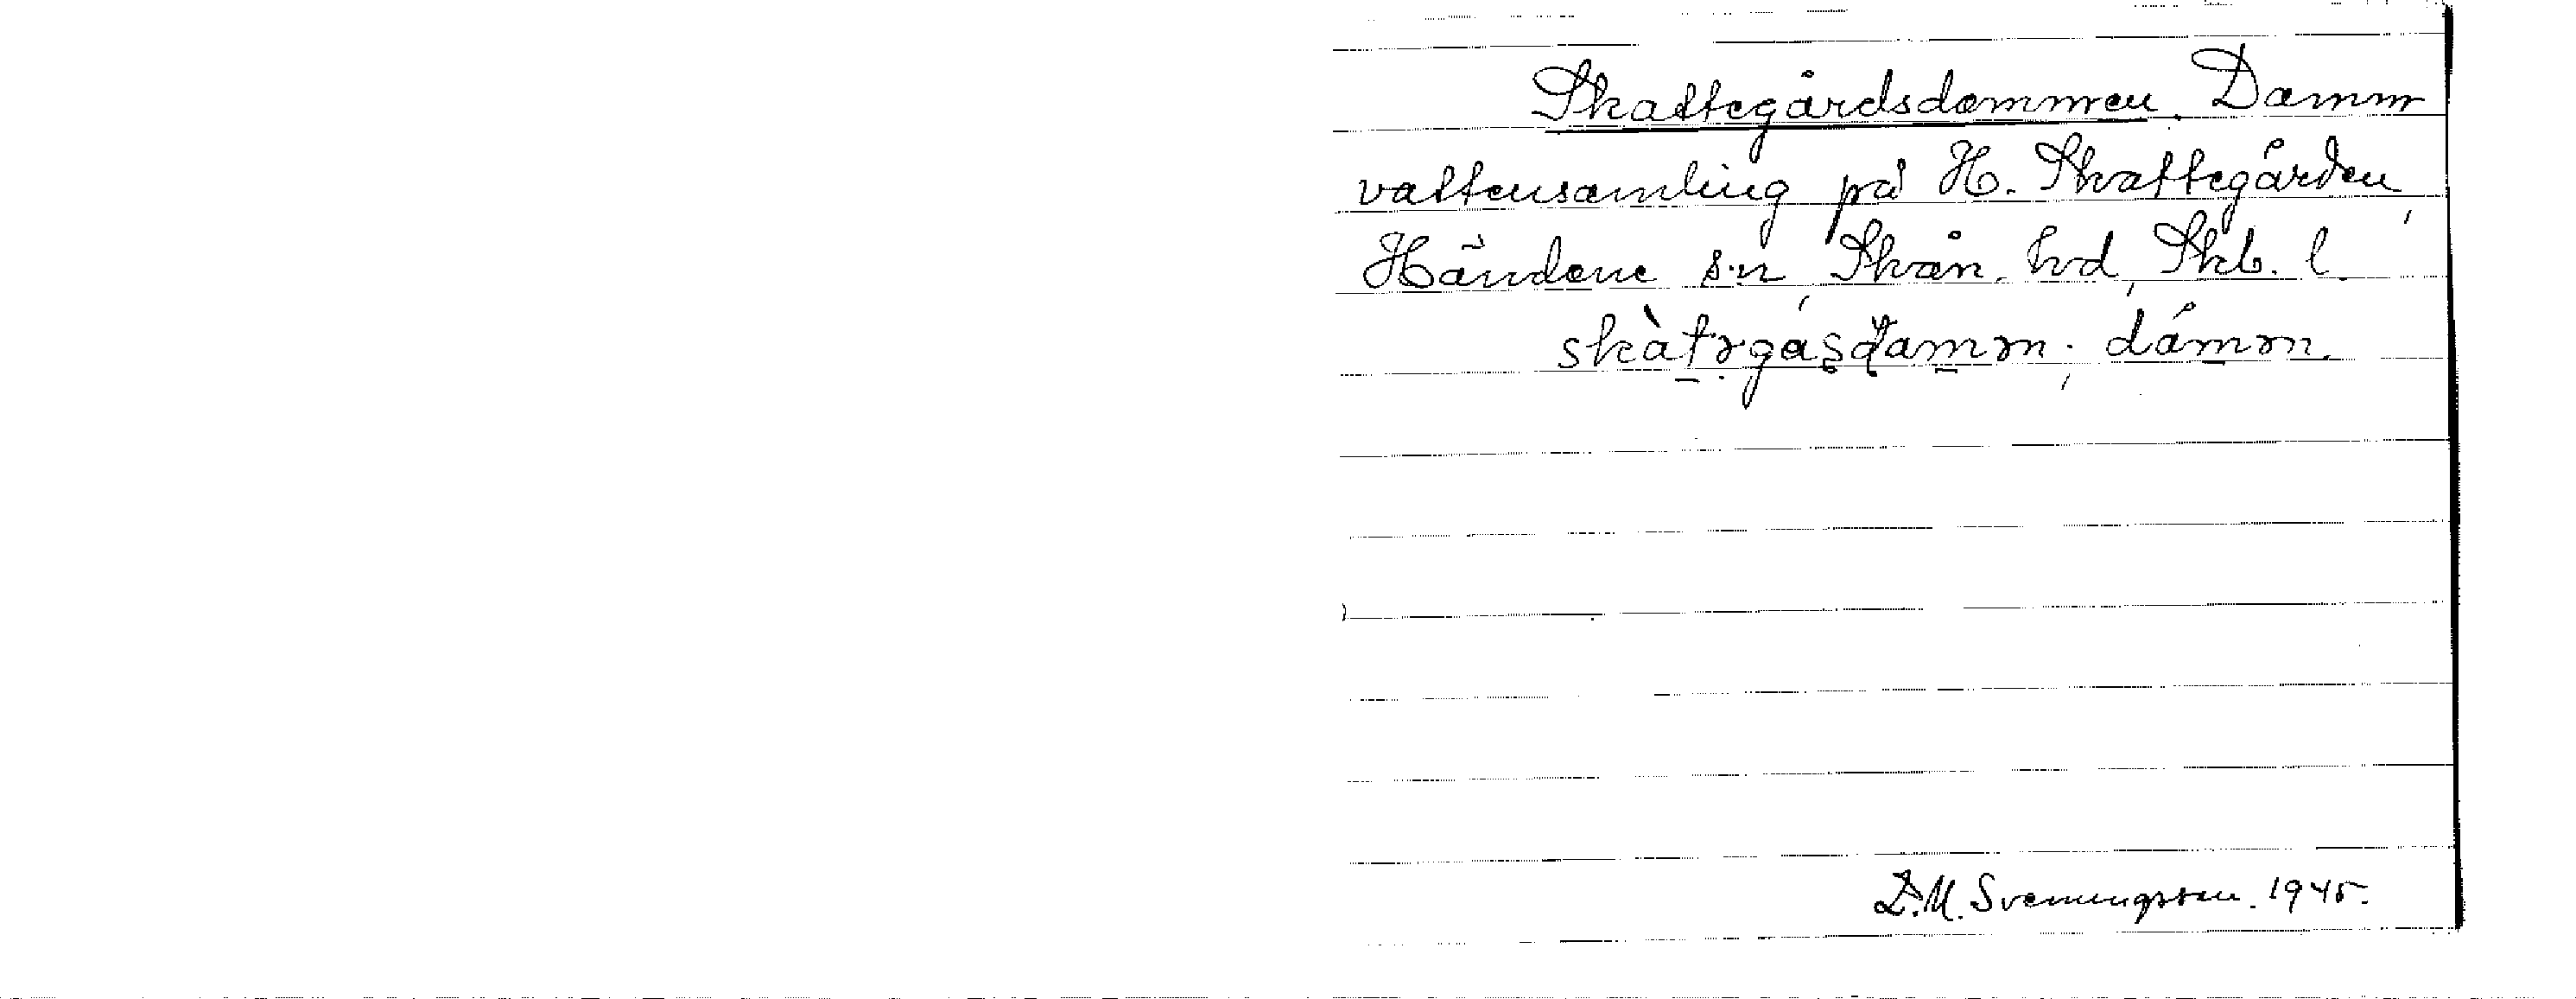 Skattegårdsdammen. Damm
vattensamling på H. Skattegården,
Händene s:n, Skån. hd, Skb. l.
skàtəgásdamən; dámən.
D. M. Svenningsson. 1945.